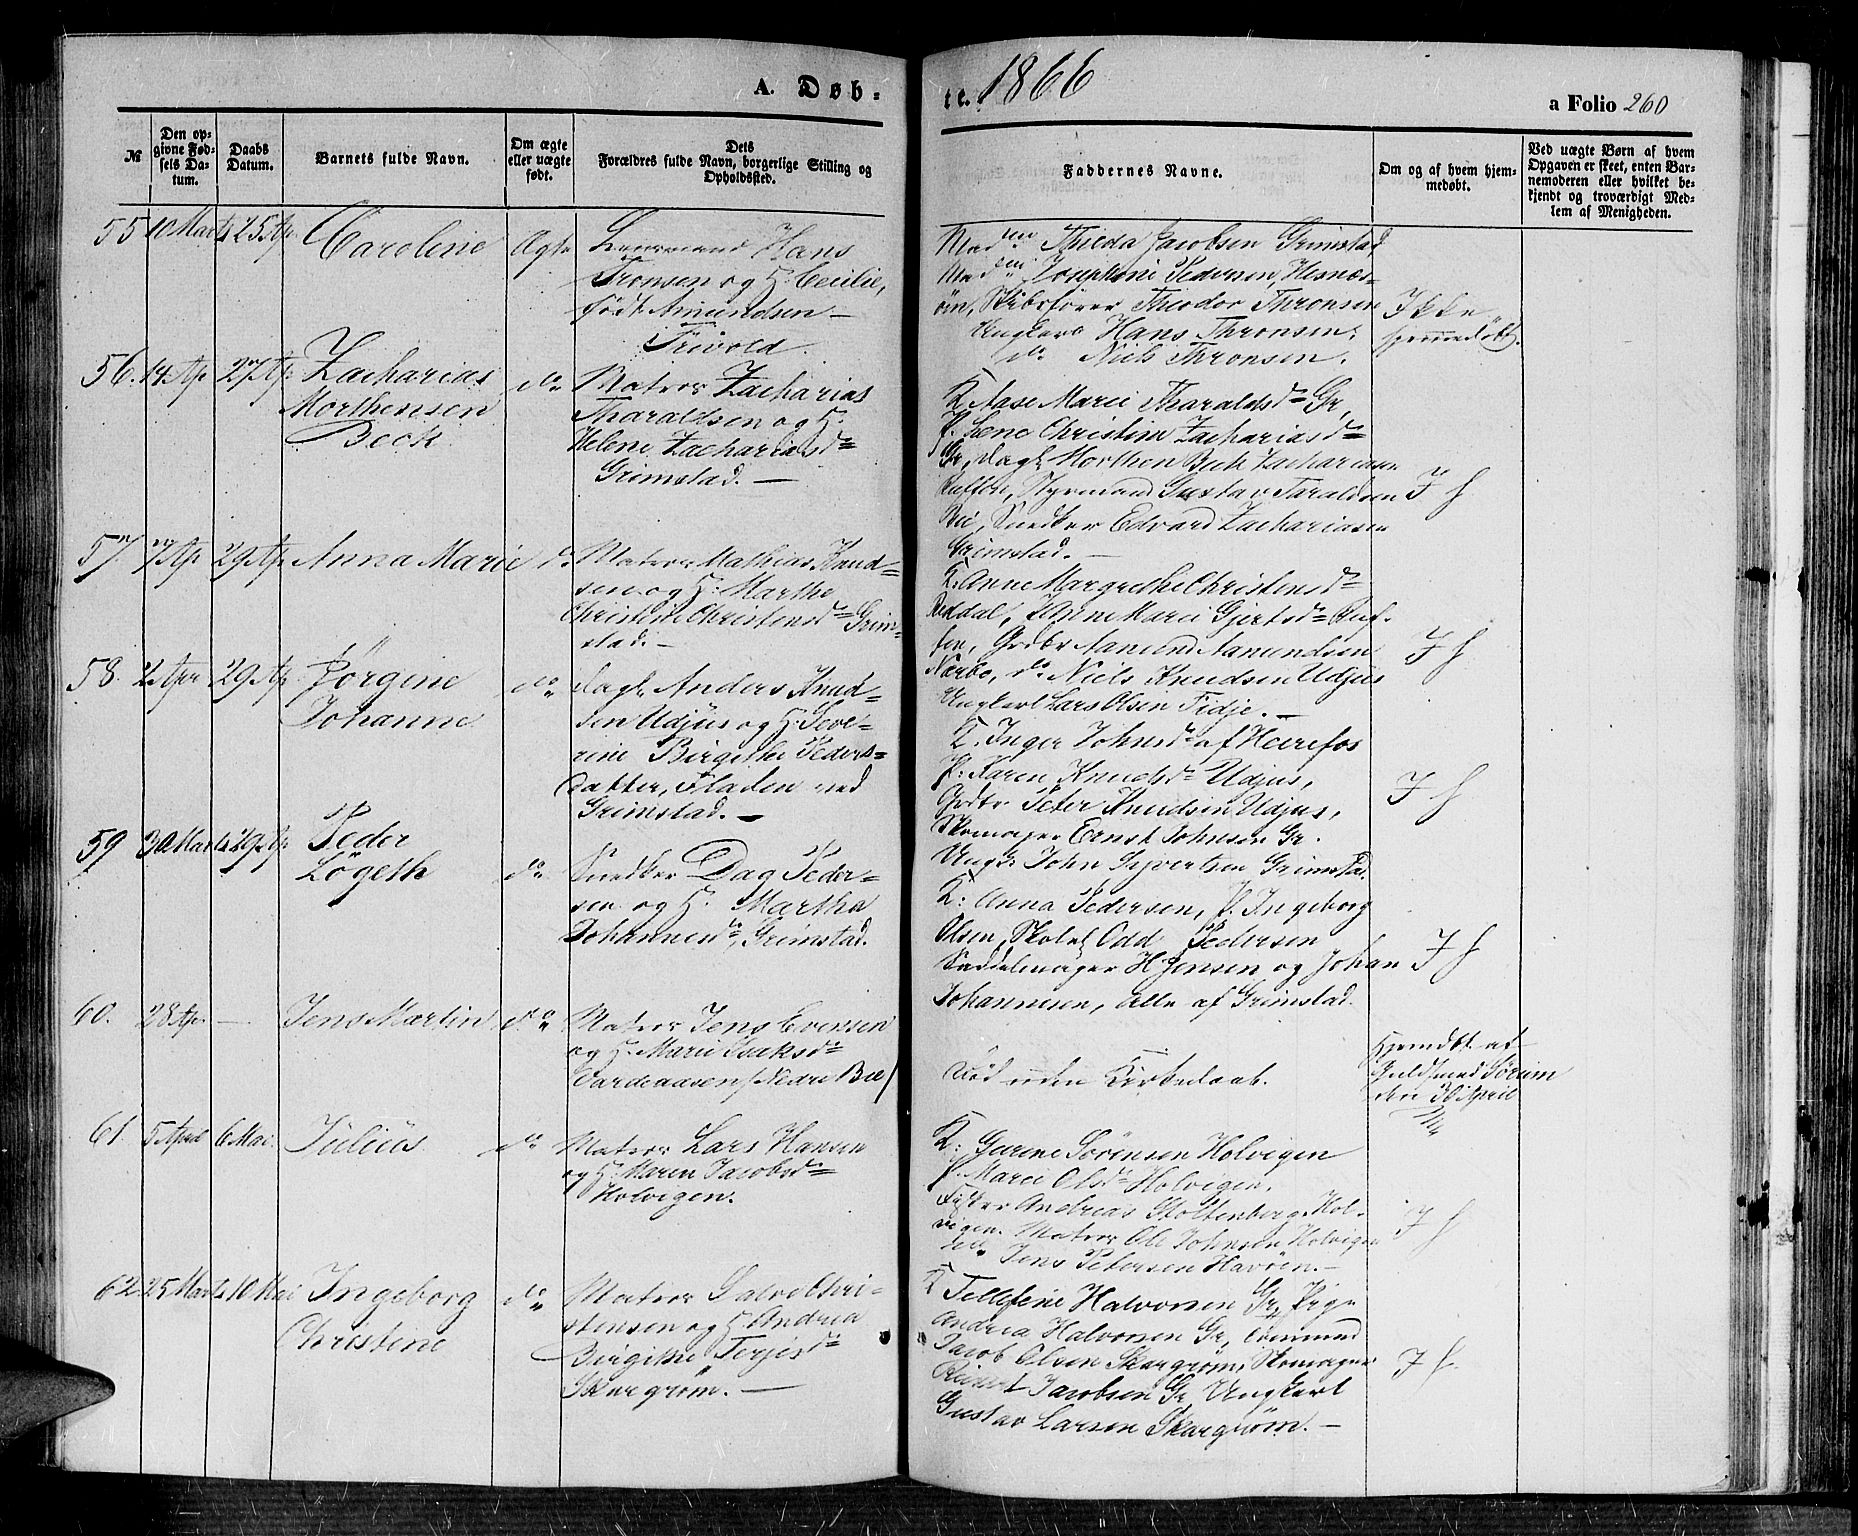 A. Døb-
te. 1866
a Folio 260
№
Den op-
givne Fød-
sels Da-
tum.
Daabs
Datum.
Barnets fulde Navn.
Om ægte
eller uægte
født.
Dets
Forældres fulde Navn, borgerlige Stilling og
Opholdssted.
Faddernes Navne.
Om og af hvem hjem-
medøbt.
Ved uægte Børn af hvem
Opgaven er skeet, enten Bar-
nemoderen eller hvilket be-
kjendt og troværdigt Med-
lem af Menigheden.
55 10 Marts 25 Ap. Caroline Ægte
Lensmand Hans
Tronsen og H. Cecilie,
født Amundsen –
Frivold.
Thilda Jacobsen Grimstad
Josephine Pedersen, Hesnæs-
öen, Skibsfører Theodor Thronsen
Ungkarl Hans Thronsen,
do Niels Thronsen.
Ikke
hjemmedöbt.
56. 14 Ap 27 Ap. Zacharias
Morthensen
Beck
do
Matros Zacharias
Tharaldsen og H.
Helene Zachariasd.
Grimstad. –
K. Aase Marie Tharaldsd. Gr,
P. Lene Christine Zachariasd.
Gr, Dagl. Morthen Beck Zachariasen
Styrmand Gustav Taraldsen
Bie, Snedker Edvard Zachariasen
Grimstad. –
I H
57. 7 Ap 29 Ap Anna Marie do
Matros Mathias Knud-
sen og H. Marthe
Christine Christensd. Grim-
stad. –
K. Anne Margrethe Christensd.
Reddal, Anne Marie Gjertsd.
Gdbr Aanund Aanundsen
Nærbø, do Niels Knudsen Udjus
Ungkarl Lars Olsen Fidje. –
I H
58. 2 Apr 29 Ap Jörgine
Johanne
do
Dagl. Anders Knud-
sen Udjus og H. Seve-
rine Birgithe Peders-
datter, Fladen ved
Grimstad. –
K. Inger Johnsd. af Heerefos
P. Karen Knudsd. Udjus,
Gdbr Peter Knudsen Udjus,
Skomager Ernst Johnsen Gr.
Ungk. John Syvertsen Grimstad.
I H
59 30 Marts 29 Ap Peder
Lögeth
do
Snedker Dag Peder-
sen og H. Marthe
Johannesd., Grimstad.
K: Anna Pedersen, P. Ingeborg
Olsen, Skolel. Odd Pedersen
Saddelmager H Jensen og Johan
Johannesen, alle af Grimstad.
I H
60. 28 Ap. – Jens Martin do
Matros Jens Evensen
og H. Marie Isaksd.
Vardeaasen / Nedre Bie /
Död uden Kirkedaab.
Hjemdbt af
Guldsmed Sörum
den 30 April
61. 5 April 6 Mai Julius do
Matros Lars Hansen
og H. Maren Jacobsd.
Holvigen.
K: Gurine Sörensen Holvigen
P. Marie Olsd. Holvigen,
Fisker Andreas Stoltenberg, Hol-
vigen. Matros Ole Johnsen Holvigen
do Jens Petersen Havöen. –
I H
62. 25 Marts 10 Mai Ingeborg
Christine
do
Matros Salve Chri-
stensen og H. Andrea
Birgithe Terjesd.
Skargrøm. –
K Tellefine Halvorsen Gr, Pige
Andrea Halvorsen Gr, Tømmerm
Jacob Olsen Skargrøm, Skomager
Jacobsen Gr, Ungkarl
Gustav Larsen Skargrøm. –
I H.